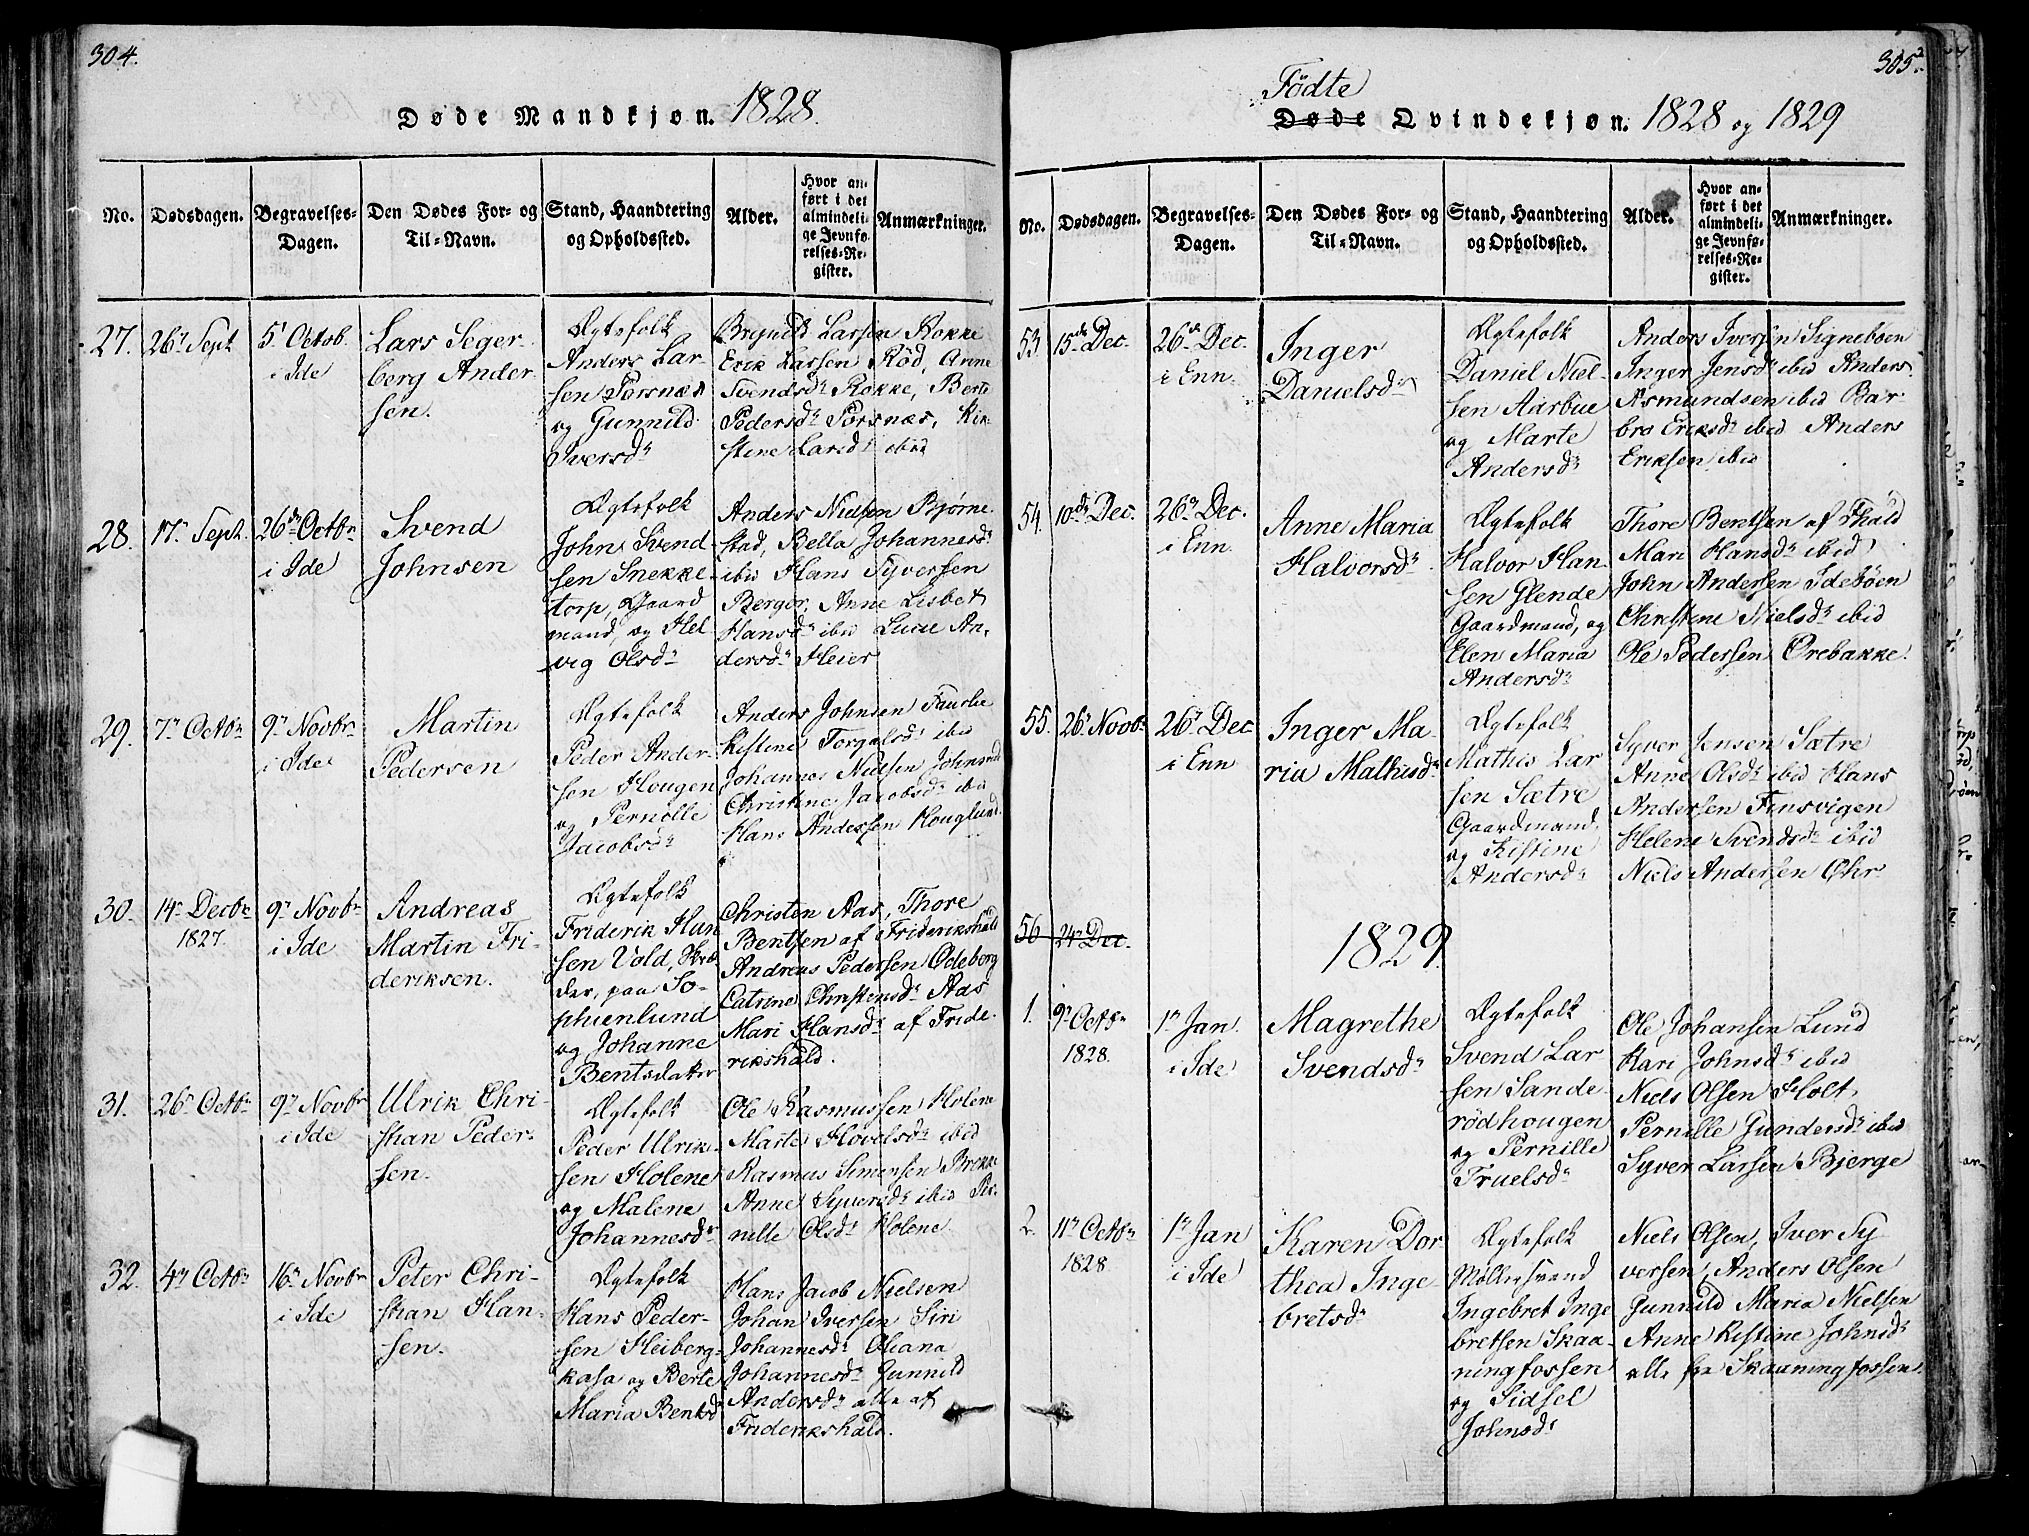 304.
Døde Mandkjøn. 1828.
No.
Dødsdagen.
Begravelses-
Dagen.
Den Dødes For- og
Til-Navn.
Stand, Haandtering
og Opholdssted.
Alder.
Hvor an-
ført i det
almindeli-
ge Jevnfø-
relses-Re-
gister.
Anmærkninger.
27.
26r Sept
5t Octob.
i Ide
Lars Seger-
berg Ander
sen.
Ægtefolk
Anders Lar-
sen Torsnæs
og Gunnild
Iversdr
Larsen Rokke
Erik Larsen Rød, Anne
Svendsdr Rokke, Berte
Pedersdr Torsnæs, Kir-
stine Larsdr ibid
28.
17r Sept.
26de Octbr
i Ide
Svend
Johnsen
Ægtefolk
John Svend
sen Snekke
torp, Gaard
mand, og Hel
vig Olsdr
Anders Nielsen Bjørne
stad, Bella Johannesdr
ibid Hans Syversen
Berger, Anne Lisbet
Hansdr ibid Lucie An-
dersdr Heier
29.
7r Octbr
9r Novbr
i Ide
Martin
Pedersen
Ægtefolk
Peder Ander-
sen Hougen
og Pernille
Jacobsdr
Anders Johnsen
Kistine Torgalsdr ibid
Johannes Nielsen
Christine Jacobsdr ibid
Hans Andersen Houglund
30.
14r Decbr
1827.
9r Novbr
i Ide
Andreas
Martin Fri-
deriksen.
Ægtefolk
Friderik Han
sen Vold,
der, paa So-
phienlund
og Johanne
Bentsdatter
Christen Aas, Thore
Bentsen af Friderikshald
Andreas Pedersen Ødeberg
Catrine Christensdr Aas
Mari Hansdr af Fride-
rikshald.
31.
26r Octbr
9r Novbr
i Ide
Ulrik Chri-
stian Peder-
sen.
Ægtefolk
Peder Ulrik-
sen Holene
og Malene
Johannesdr
Ole Rasmussen Holene
Marte Hovelsdr ibid
Rasmus Simensen Brekke
Anne Syversdr ibid Per-
nille Olsdr Holene.
32.
4r Octbr
16r Novbr
i Ide
Peter Chri-
stian Han-
sen.
Ægtefolk
Hans Peder-
sen Heiberg-
kasa og Berte
Maria Bentsdr
Hans Jacob Nielsen
Johan Iversen Siri
Johannesdr Oleana
Johannesdr Gunnild
Andersdr alle af
Friderikshald.
305.
Fødte
Døde Qvindekjøn. 1828 og 1829
No.
Dødsdagen.
Begravelses-
Dagen.
Den Dødes For- og
Til-Navn.
Stand, Haandtering
og Opholdssted.
Alder.
Hvor an-
ført i det
almindeli-
ge Jevnfø-
relses-Re-
gister.
Anmærkninger.
53.
15de Dec.
26de Dec.
i Enn.
Inger
Danielsdr
Ægtefolk
Daniel Niel-
sen Aarbue
og Marte
Andersdr
Anders Iversen Signebøen
Inger Jensdr ibid Anders
Asmundsen ibid Bar-
bro Eriksdr ibid Anders
Eriksen ibid
54.
10de Dec.
26r Dec.
i Enn.
Anne Maria
Halvorsdr
Ægtefolk
Halvor Han-
sen Glende
Gaardmand, og
Elen Maria
Andersdr
Thore Bentsen af Fhald
Mari Hansdr ibid
John Andersen Idebøen
Christine Nielsdr ibid
Ole Pedersen Ørebakke.
55.
26r Novbr
26r Dec
i Enn
Inger Ma-
ria Mathisdr
Ægtefolk
Mathis Lar
sen Sætre
Gaardmand,
og Kistine
Andersdr
Syver Jensen Sætre
Anne Olsdr ibid Hans
Andersen Finsvigen
Helene Svendsdr ibid
Niels Andersen Øhr
56
24r Dec.
1829.
1.
9r Octbr
1828.
1r Jan.
i Ide
Magrethe
Svendsdr
Ægtefolk
Svend Lar
sen Sande-
rødhougen
og Pernille
Truelsdr
Ole Johansen Lund
Kari Johnsdr ibid
Niels Olsen Holt,
Pernille Gundersdr ibid
Syver Larsen Bjerge
2.
11r Octbr
1828.
1r Jan
i Ide
Karen Dor
thea Inge
bretsdr
Ægtefolk
Møllersvend
Ingebret Inge
bretsen Skaa-
ningfossen
og Sidsel
Johnsdr
Niels Olsen, Iver Sy
versen, Anders Olsen
Gunnild Maria Nielsen
Anne Kistine Johnsdr
alle fra Skaaningfossen.